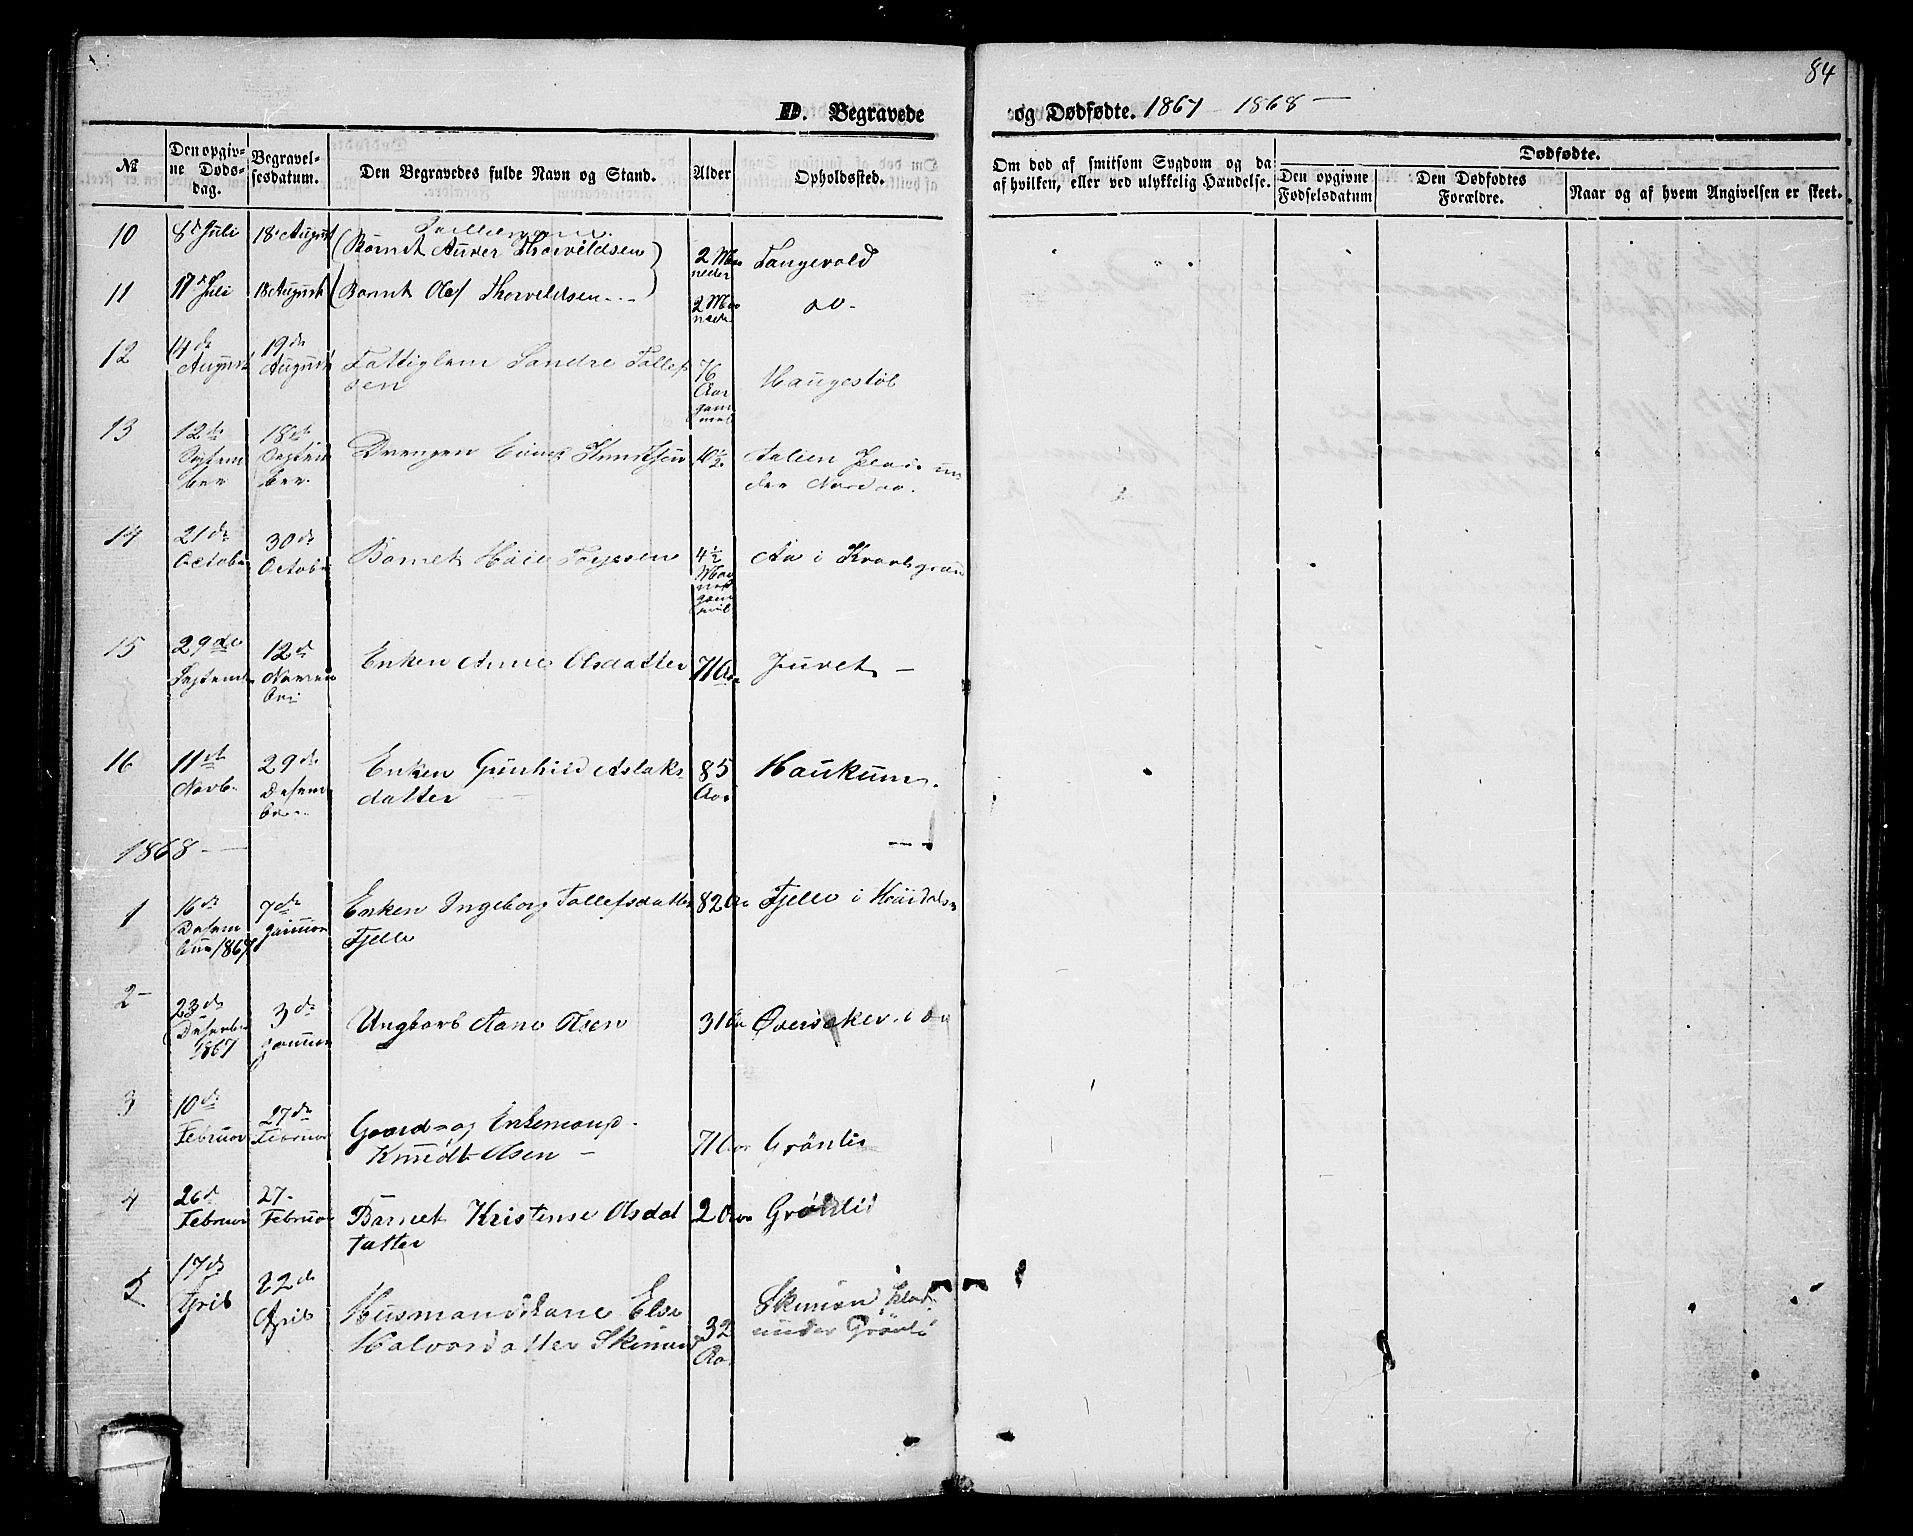 84
D. Begravede og Dødfødte. 1867 - 1868 —
№ Den opgivne Dødsdag. Begravelsesdatum. Den Begravedes fulde Navn og Stand. Alder Opholdssted. Om død af smitsom Sygdom og da af hvilken, eller ved ulykkelig Hændelse. Dødfødte. Den opgivne Fødselsdatum Den Dødfødtes Forældre. Naar og af hvem Angivelsen er skeet.
Tvillingerne
10 8de Juli 18. August (Barnet Ander Thorvildsen) 2 Maaneder Tangevold
11 17de Juli 18 August (Barnet Olaf Thorvildsen 2 Maaneder do-
12 14de August 19de August Fattiglem Sondre Tollef
sen 76 Aar gammel Haugestøl
13 12de September 18de September Drengen 10½
der
14 21de October 30de October Barnet Tarjesen 4½ Aa i
15 29de September 12de November Enken Anne Olsdatter 71 Aar Juvet —
16 11de Novb. 29de Desember Enken Gunhild Aslaks 85
datter — Aar Haukum.
1868 —
1 16de Desember 1867 7de Januar Enken Ingeborg Tollefsdatter 82 Aar Fjelle i
Fjelle
2 - 23de Desember 1867 3de Januar Ungkarl Aane Olsen 31 Aar Øversaker i do
3 10de Februar 27de Februar Gaard- og Enkemand
Knudt Olsen — 71 Aar Grönlie
4 26de Februar 27- Februar Barnet Kristense Olsdat 2 Aar Grönlid
tatter
5 17de April 22de April Husmandskone Else
Halvorsdatter Skinnen 32 Aar Skinnen plads
under Grönli